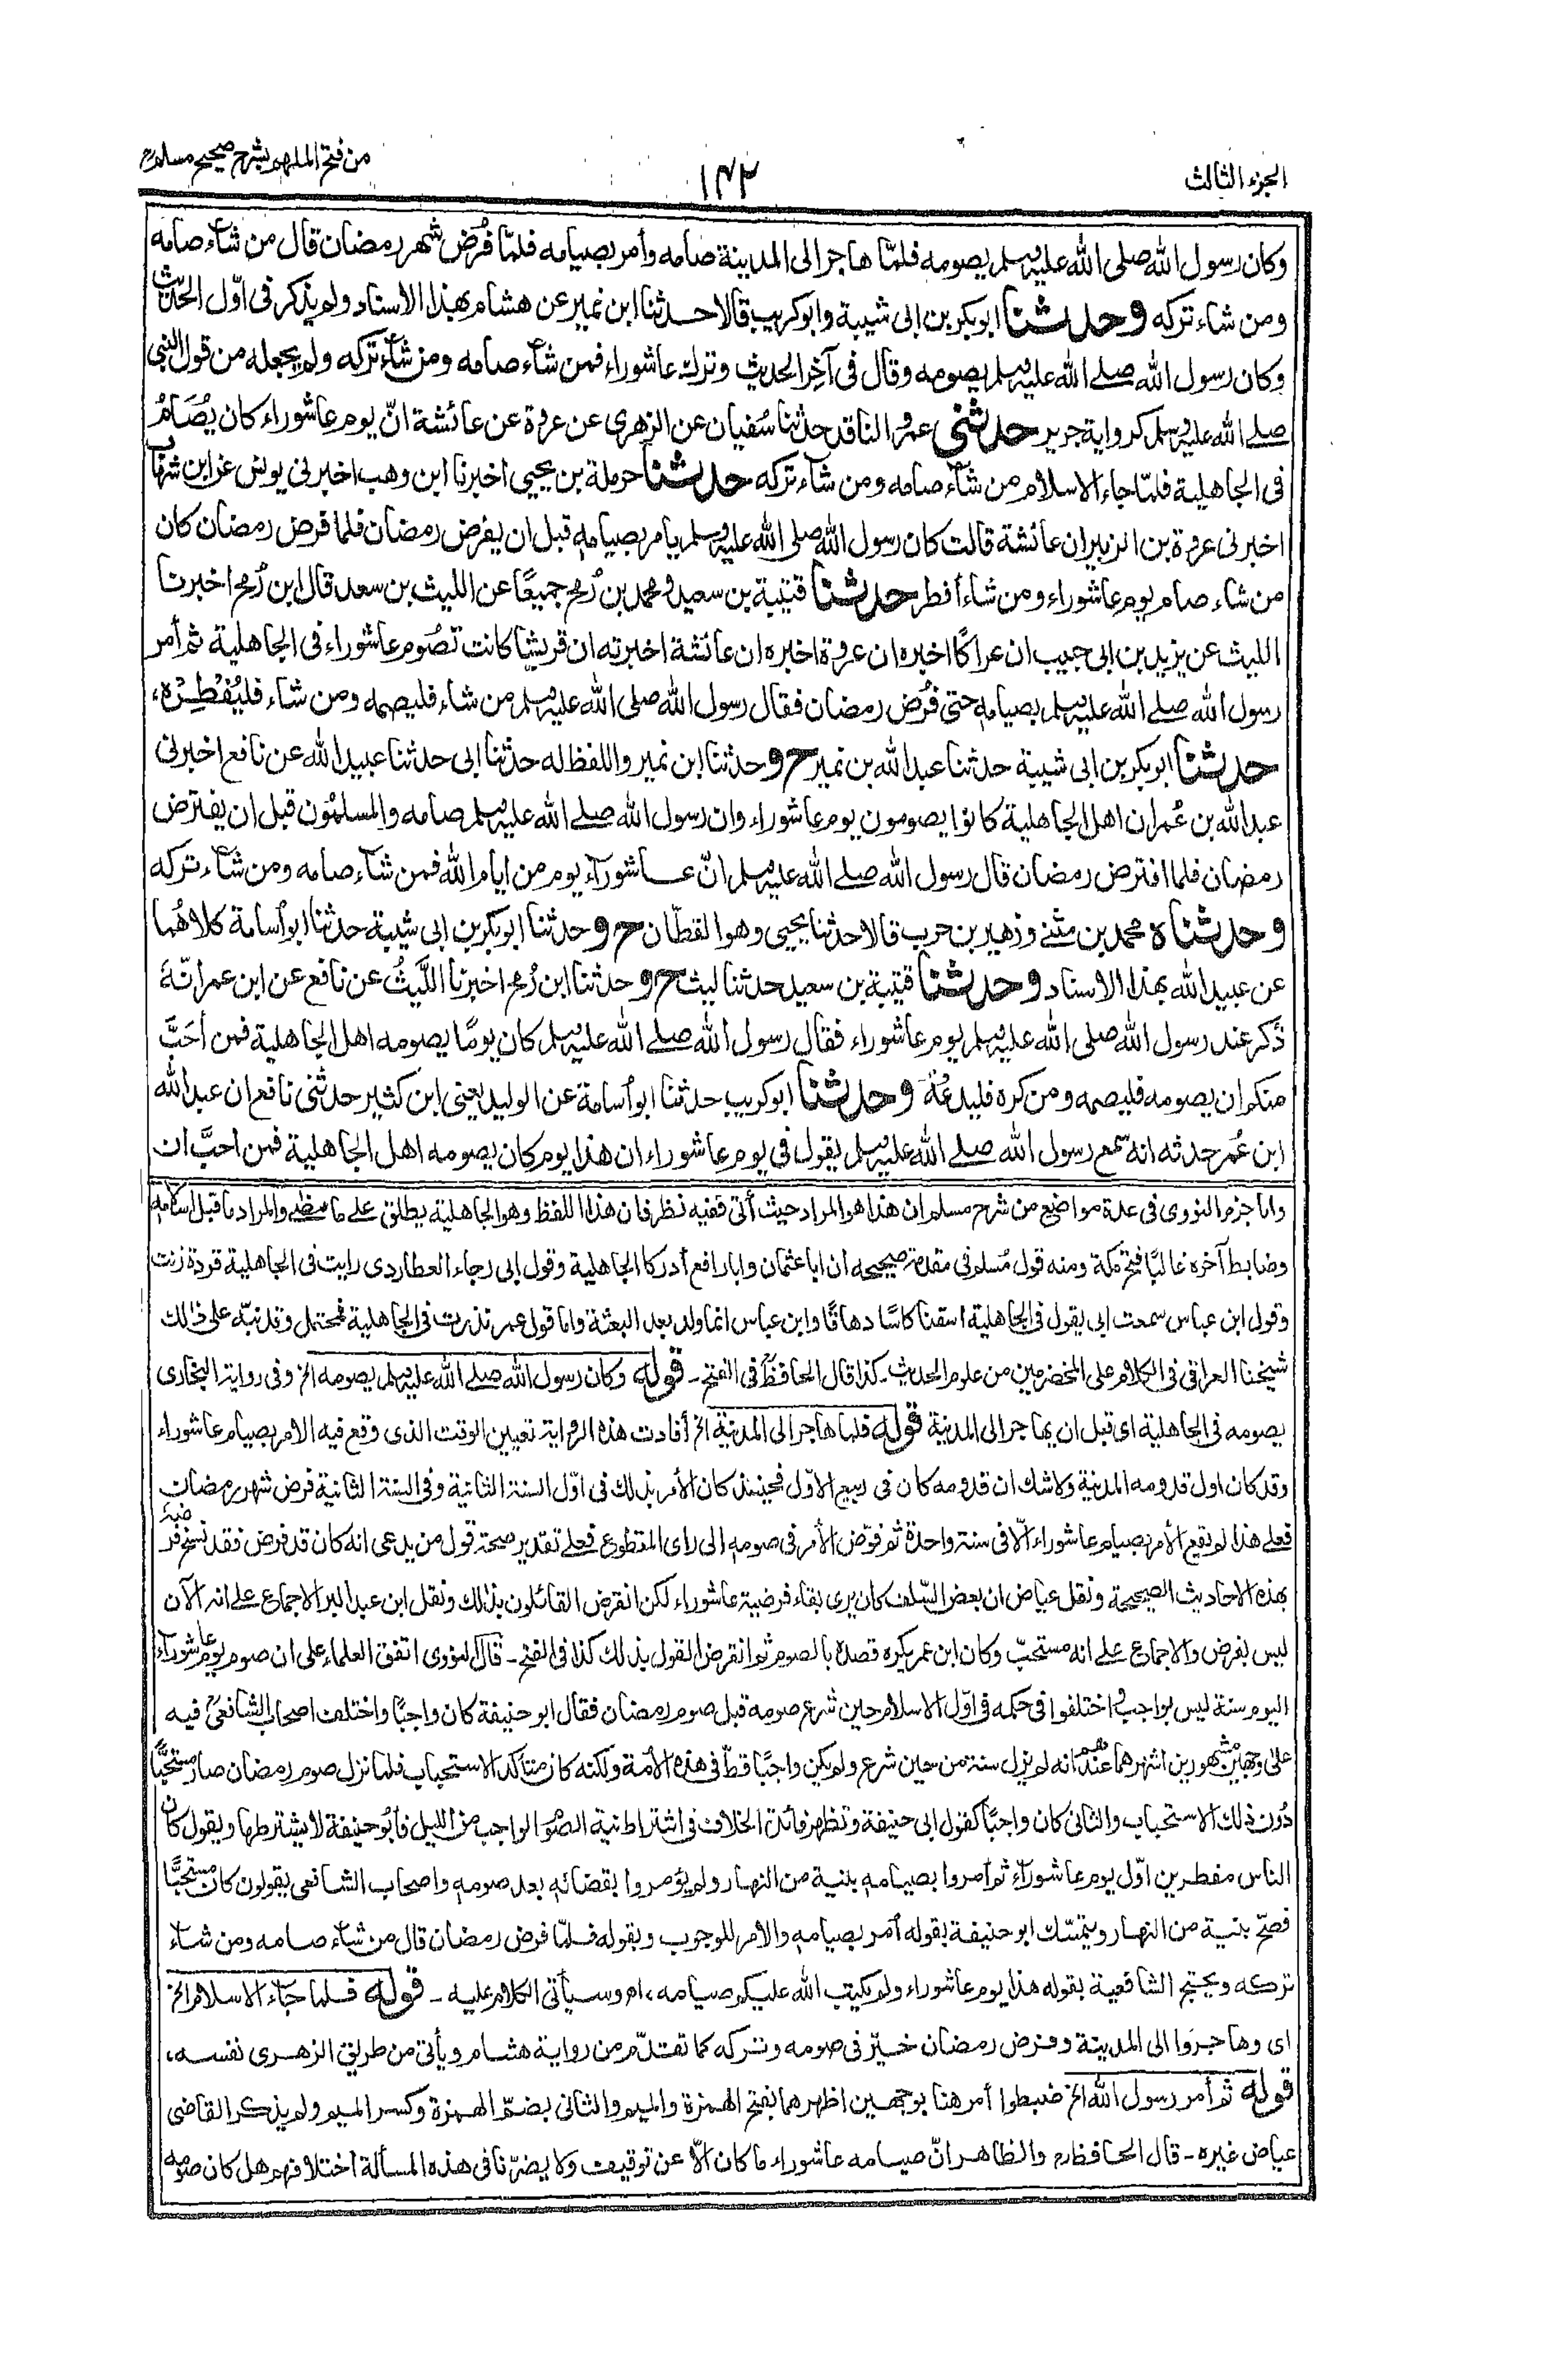 الجزء الثالث
١٤٢
من فتح الملهم بشرح صحيح مسلم
وكان رسول الله صلى الله عليه وسلم يصومه فلمّا هاجر الى المدينة صامه وأمر بصيامه فلمّا فُرَض شهر رمضان قال من شآء صامه
ومن شاء تركه وحدثنا ابو بكر بن ابى شيبة وابو كريب قالا حدثنا ابن نمير عن هشام بهذا الاسناد ولم يذكر فى اوّل الحديث
وكان رسول الله صلے الله عليه وسلم يصومه وقال فى آخِر الحديث وترك عاشوراء فمن شآء صامه ومن شآء تركه ولم يجعله من قول النبى
صلے الله عليه وسلم كرواية جرير حدثنى عمرو الناقد حدثنا سُفيان عن الزهرى عن عروة عن عائشة انّ يوم عاشوراء كان يُصَامُ
فى الجاهلية فلمّا جاء الاسلام من شآء صامه ومن شآء تركه حدثنا حرملة بن يحيى اخبرنا ابن وهب اخبرنى يونس عن ابن شهاب
اخبرنى عروة بن الزبير ان عائشة قالت كان رسول الله صلى الله عليه وسلم يامر بصيامه قبل ان يفرض رمضان فلما فرض رمضان كان
من شاء صام يوم عاشوراء ومن شاء أفطر حدثنا قتيبة بن سعيد ومحمد بن رُمح جميعًا عن الليث بن سعد قال ابن رُمح اخبرنا
الليث عن يزيد بن ابى حبيب ان عراكًا اخبره ان عروة اخبره ان عائشة اخبرته ان قريشًا كانت تصُوم عاشوراء فى الجاهلية ثم أمر
رسول الله صلے الله عليه وسلم بصيامه حتى فُرض رمضان فقال رسول الله صلى الله عليه وسلم من شاء فليصمه ومن شاء فليُفْطِرْه،
حدثنا ابو بكر بن ابى شيبة حدثنا عبد الله بن نمير ح وحدثنا ابن نمير واللفظ له حدثنا ابى حدثنا عبيد الله عن نافع اخبرنى
عبد الله بن عُمر ان اهل الجاهلية كانوا يصومون يوم عاشوراء وان رسول الله صلے الله عليه وسلم صامه والمسلمُون قبل ان يفترض
رمضان فلما افترض رمضان قال رسول الله صلے الله عليه وسلم انّ عاشورآء يوم من ايام الله فمن شآء صامه ومن شآء تركه
وحدثناه محمد بن مثنے وزهير بن حرب قالا حدثنا يحيى وهو القطّان ح وحدثنا ابو بكر بن ابى شيبة حدثنا ابو أسامة كلاهُما
عن عبيد الله بهذا الاسناد وحدثنا قتيبة بن سعيد حدثنا ليث ح وحدثنا ابن رُمح اخبرنا اللّيثُ عن نافع عن ابن عمر انّهُ
ذُكر عند رسول الله صلى الله عليه وسلم يوم عاشوراء فقال رسول الله صلے الله عليه وسلم كان يومًا يصومه اهل الجاهلية فمن أحَبَّ
منكم ان يصومه فليصمه ومن كره فليدعْهُ وحدثنا ابو كريب حدثنا ابو أسامة عن الوليد يعنى ابن كثير حدثنى نافع ان عبد الله
ابن عُمر حدثه انهٗ سمع رسول الله صلے الله عليه وسلم يقول فى يوم عاشوراء ان هذا يوم كان يصومه اهل الجاهلية فمن احبَّ ان
واما جزم النووى فى عدة مواضع من شرح مسلم ان هذا هو المراد حيث أتى ففيه نظر فان هذا اللفظ وهو الجاهلية يطلق علے ما مضے والمراد ما قبل اسلامه
وضابط آخره غالبًا فتح مكة ومنه قول مُسلم فى مقدمة صحيحه ان ابا عثمان وابا رافع أدركا الجاهلية وقول ابى رجاء العطاردى رايت فى الجاهلية قردة زنت
وقول ابن عباس سمعت ابى يقول فى الجاهلية اسقنا كاسًا دهاقًا وابن عباس انما ولد بعد البعثة واما قول عمر نذرت فى الجاهلية فمحتمل وقد نبّه على ذٰلك
شيخنا العراقى فى الكلام على المخضرمين من علوم الحديث۔ كذا قال الحافظؒ فى الفتح۔ قولهٖ وكان رسول الله صلے الله عليه وسلم يصومه الخ وفى رواية البخارى
يصومه فى الجاهلية اى قبل ان يهاجر الى المدينة قولهٖ فلما هاجر الى المدينة الخ أفادت هذه الرواية تعيين الوقت الذى وقع فيه الامر بصيام عاشوراء
وقد كان اول قدومه المدينة ولا شك ان قدومه كان فى ربيع الاوّل فحينئذ كان الأمر بذلك فى اوّل السنة الثانية وفى السنة الثانية فرض شهر رمضان
فعلے هذا لم يقع الأمر بصيام عاشوراء الّا فى سنة واحدة ثم فوّض الأمر فى صومه الى راى المتطوع فعلے تقدير صحة قول من يدعى انه كان قد فرض فقد نسخ فرضه
بهذه الاحاديث الصحيحة ونقل عياض ان بعض السّلف كان يرى بقاء فرضية عاشوراء لكن انقرض القائلون بذلك ونقل ابن عبد البر الاجماع علے انه الآن
ليس بفرض والاجماع علے انه مستحبّ وكان ابن عمر يكره قصده بالصوم ثم انقرض القول بذلك كذا فى الفتح۔ قال النووى اتفق العلماء على ان صوم يوم عاشورآء
اليوم سنة ليس بواجب واختلفوا فى حكمه فى اوّل الاسلام حين شرع صومه قبل صوم رمضان فقال ابو حنيفة كان واجبًا واختلف اصحاب الشافعىؒ فيه
علىٰ وجهين مشهورين اشهرهما عندهم انه لم يزل سنة من حين شرع ولم يكن واجبًا قطّ فى هذه الأمة ولكنه كان متأكد الاستحباب فلما نزل صوم رمضان صار مستحبًّا
دُون ذلك الاستحباب والثانى كان واجبًا كقول ابى حنيفة وتظهر فائدة الخلاف فى اشتراط نية الصوم الواجب من الليل فأبُو حنيفة لا يشترطها ويقول كان
الناس مفطرين اوّل يوم عاشورآء ثم أمروا بصيامه بنية من النهار ولم يؤمروا بقضائه بعد صومه واصحاب الشافعى يقولون كان مستحبًّا
فصحّ بنية من النهار ويتمسّك ابو حنيفة بقوله أمر بصيامه والامر للوجوب وبقوله فلمّا فرض رمضان قال من شآء صامه ومن شآء
تركه ويحتج الشافعية بقوله هذا يوم عاشوراء ولم يكتب الله عليكم صيامه، اھ وسيأتى الكلام عليه۔ قولهٖ فلما جآء الاسلام الخ
اى وهاجروا الى المدينة وفرض رمضان خيّر فى صومه وتركه كما تقدّم من رواية هشام ويأتى من طريق الزهرى نفسه،
قولهٖ ثم أمر رسول الله الخ ضبطوا أمر هنا بوجهين اظهرهما بفتح الهمزة والميم والثانى بضمّ الهمزة وكسر الميم ولم يذكر القاضى
عياض غيره۔ قال الحافظؒ والظاهر انّ صيامه عاشوراء ما كان الّا عن توقيف ولا يضرّنا فى هذه المسألة اختلافهم هل كان صومه